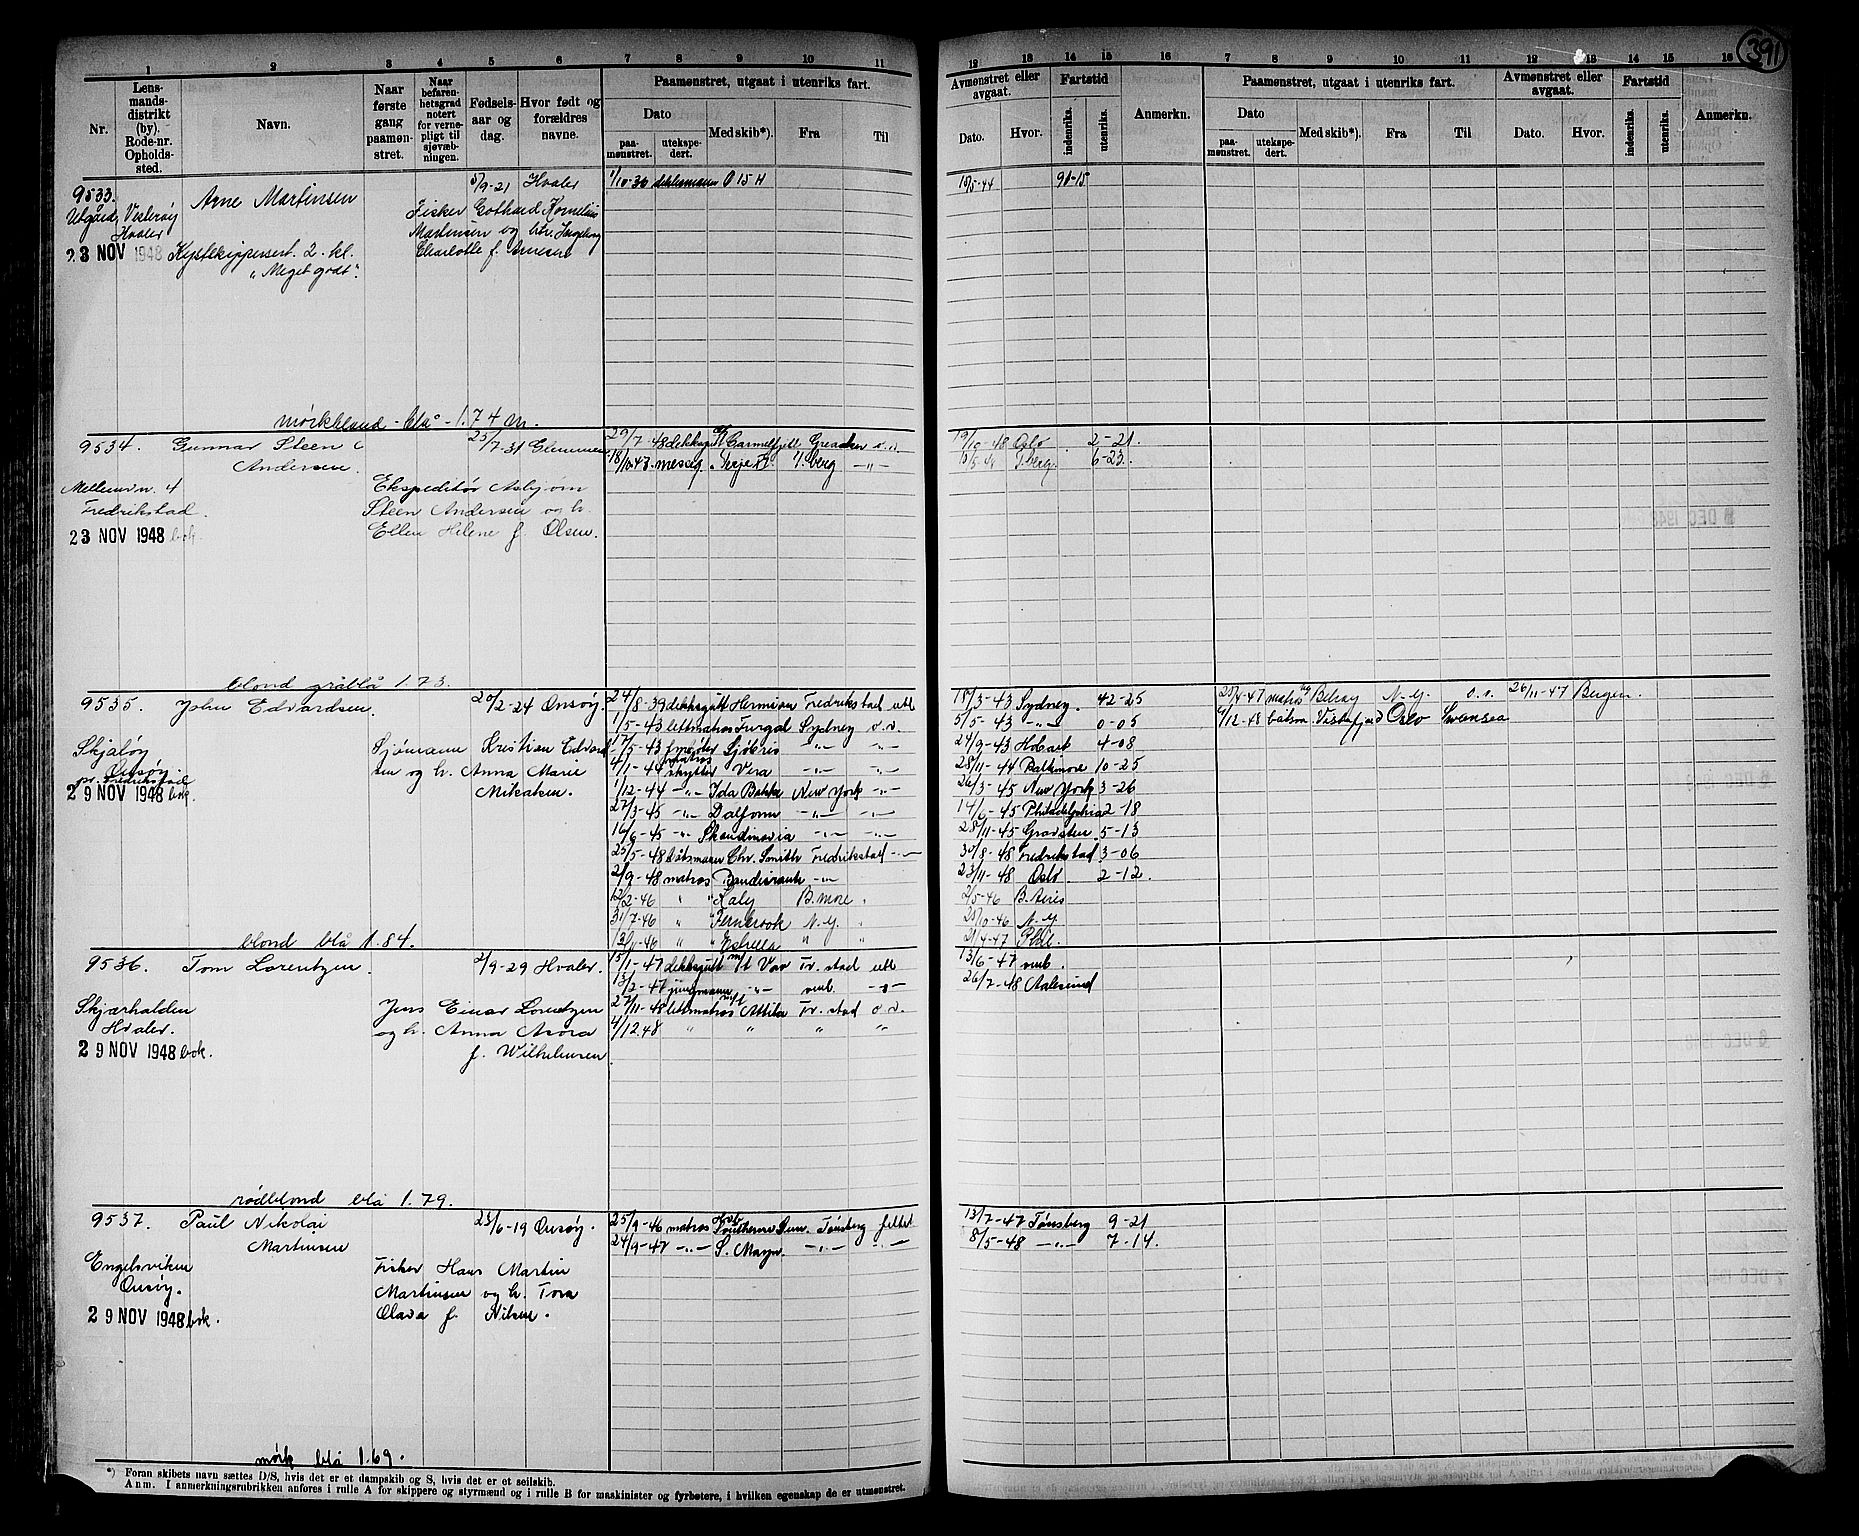 391
1 2 3 4 5 6 7 8 9 10 11
12 13 14 15 16 7 8 9 10 11 12 13 14 15 16
Nr.
Lens-
mands-
distrikt
(by).
Rode-nr.
Opholds-
sted.
Navn.
Naar
første
gang
paamøn-
stret.
Naar
befaren-
hetsgrad
notert
for verne-
pligt til
sjøvæb-
ningen.
Fødsels-
aar og
dag.
Hvor født og
forældres
navne.
Paamønstret, utgaat i utenriks fart.
Dato
paa-
mønstret.
utekspe-
dert.
Med skib*).
Fra
Til
Avmønstret eller
avgaat.
Dato.
Hvor.
Fartstid
indenriks.
utenriks.
Anmerkn.
Paamønstret, utgaat i utenriks fart.
Dato
paa-
mønstret.
utekspe-
dert.
Med skib*).
Fra
Til
Avmønstret eller
avgaat.
Dato.
Hvor.
Fartstid
indenriks.
utenriks.
Anmerkn.
9533. Arne Martinsen 5/9-21 Hvaler 1/10-36 dekksmann Ø 15 H 10/5-44 90-15
Utgård, Vesterøy Fisker Gothard Kornelius
Hvaler Martinsen og htr. Ingeborg
23 NOV 1948 Kystskippersert. 2. kl. Charlotte f. Arnesen
"Meget godt".
mørkblond - blå - 1.74 m.
9534. Gunnar Steen 25/7-31 Glemmen 29/7-48 dekksgutt Garmelfjell Greaaker o.o. 19/10-48 Oslo 2-21.
Andersen. 18/10-47 messg. Terje T.berg -"- T.berg. 6-23.
Mellomvn. 4 Ekspeditør Asbjørn
Fredrikstad. Steen Andersen og h.
23 NOV 1948 bok. Ellen Helene f. Olsen.
blond gråblå 1.73.
9535. John Edvardsen. 20/2-24 Onsøy. 24/8-39 dekksgutt Hermion Fredrikstad utl 18/3-43 Sydney. 42-25 25/4-47 matros Belray N.Y. o.s. 26/11-47 Bergen.
1/5-43 lettmatros Furgal Sydney o.o. 5/5-43 -"- 0-05 4/12-48 båtsm. Vistafjord Oslo Swansea
Skjaløy Sjømann Kristian Edvard- 17/5-43 Sjøbris -"- -"- 24/9-43 Hobart 4-08
Onsøy. sen og h. Anna Marie 4/11-44 matros skytter Vera -"- -"- 28/11-44 Baltimore 10-25
pr. Fredrikstad
29 NOV 1948 bok. Mikalsen. 1/12-44 -"- Ida Bakke New York -"- 26/3-45 New York 3-26
27/3-45 -"- Dalfonn -"- -"- 14/6-45 Philadelphia 2-18
16/6-45 -"- Skandinavia -"- -"- 28/11-45 Gravsten 5-13
25/5-48 båtsmann Chr. Smith Fredrikstad -"- 30/8-48 Fredrikstad 3-06
2/9-48 matros Bandeirante -"- 23/11-48 Oslo. 2-12.
12/2-46 " Kaly B.more " 2/5-46 B. Aires
31/7-46 " Fernbrook N.Y. " 25/10-46 N.Y.
13/11-46 " Estrella " " 21/4-47 Phil.
blond blå 1.84.
9536. Tom Lorentzen. 2/9-29 Hvaler. 15/1-47 dekksgutt m/t Vav Fr.stad utl 13/6-47 umb.
13/2-47 jungmann -"- umb. -"- 26/7-48 Aalesund
Skjærhalden Jens Einar Lorentzen 27/11-48 lettmatros m/t Attila Fr.stad o.o.
Hvaler. og h. Anna Asora 4/12.48 " " " "
29 NOV 1948 bok. f. Wilhelmsen
rødblond blå 1.79.
9537. Paul Nikolai 23/6-19 Onsøy. 25/9-46 matros Hvb. Southerne Sun. Tønsberg feltet 13/7-47 Tønsberg 9-21
Martinsen 24/9-47 -"- S. Mayn. -"- -"- 8/5-48 -"- 7-14.
Engelsviken Fisker Hans Martin
Onsøy. Martinsen og h. Tora
29 NOV 1948 bok. Olava f. Nilsen.
mørk blå 1.69.
*) Foran skibets navn sættes D/S, hvis det er et dampskib og S, hvis det er et seilskib.
Anm. I anmerkningsrubrikken anføres i rulle A for skippere og styrmænd og i rulle B for maskinister og fyrbøtere, i hvilken egenskap de er utmønstret.